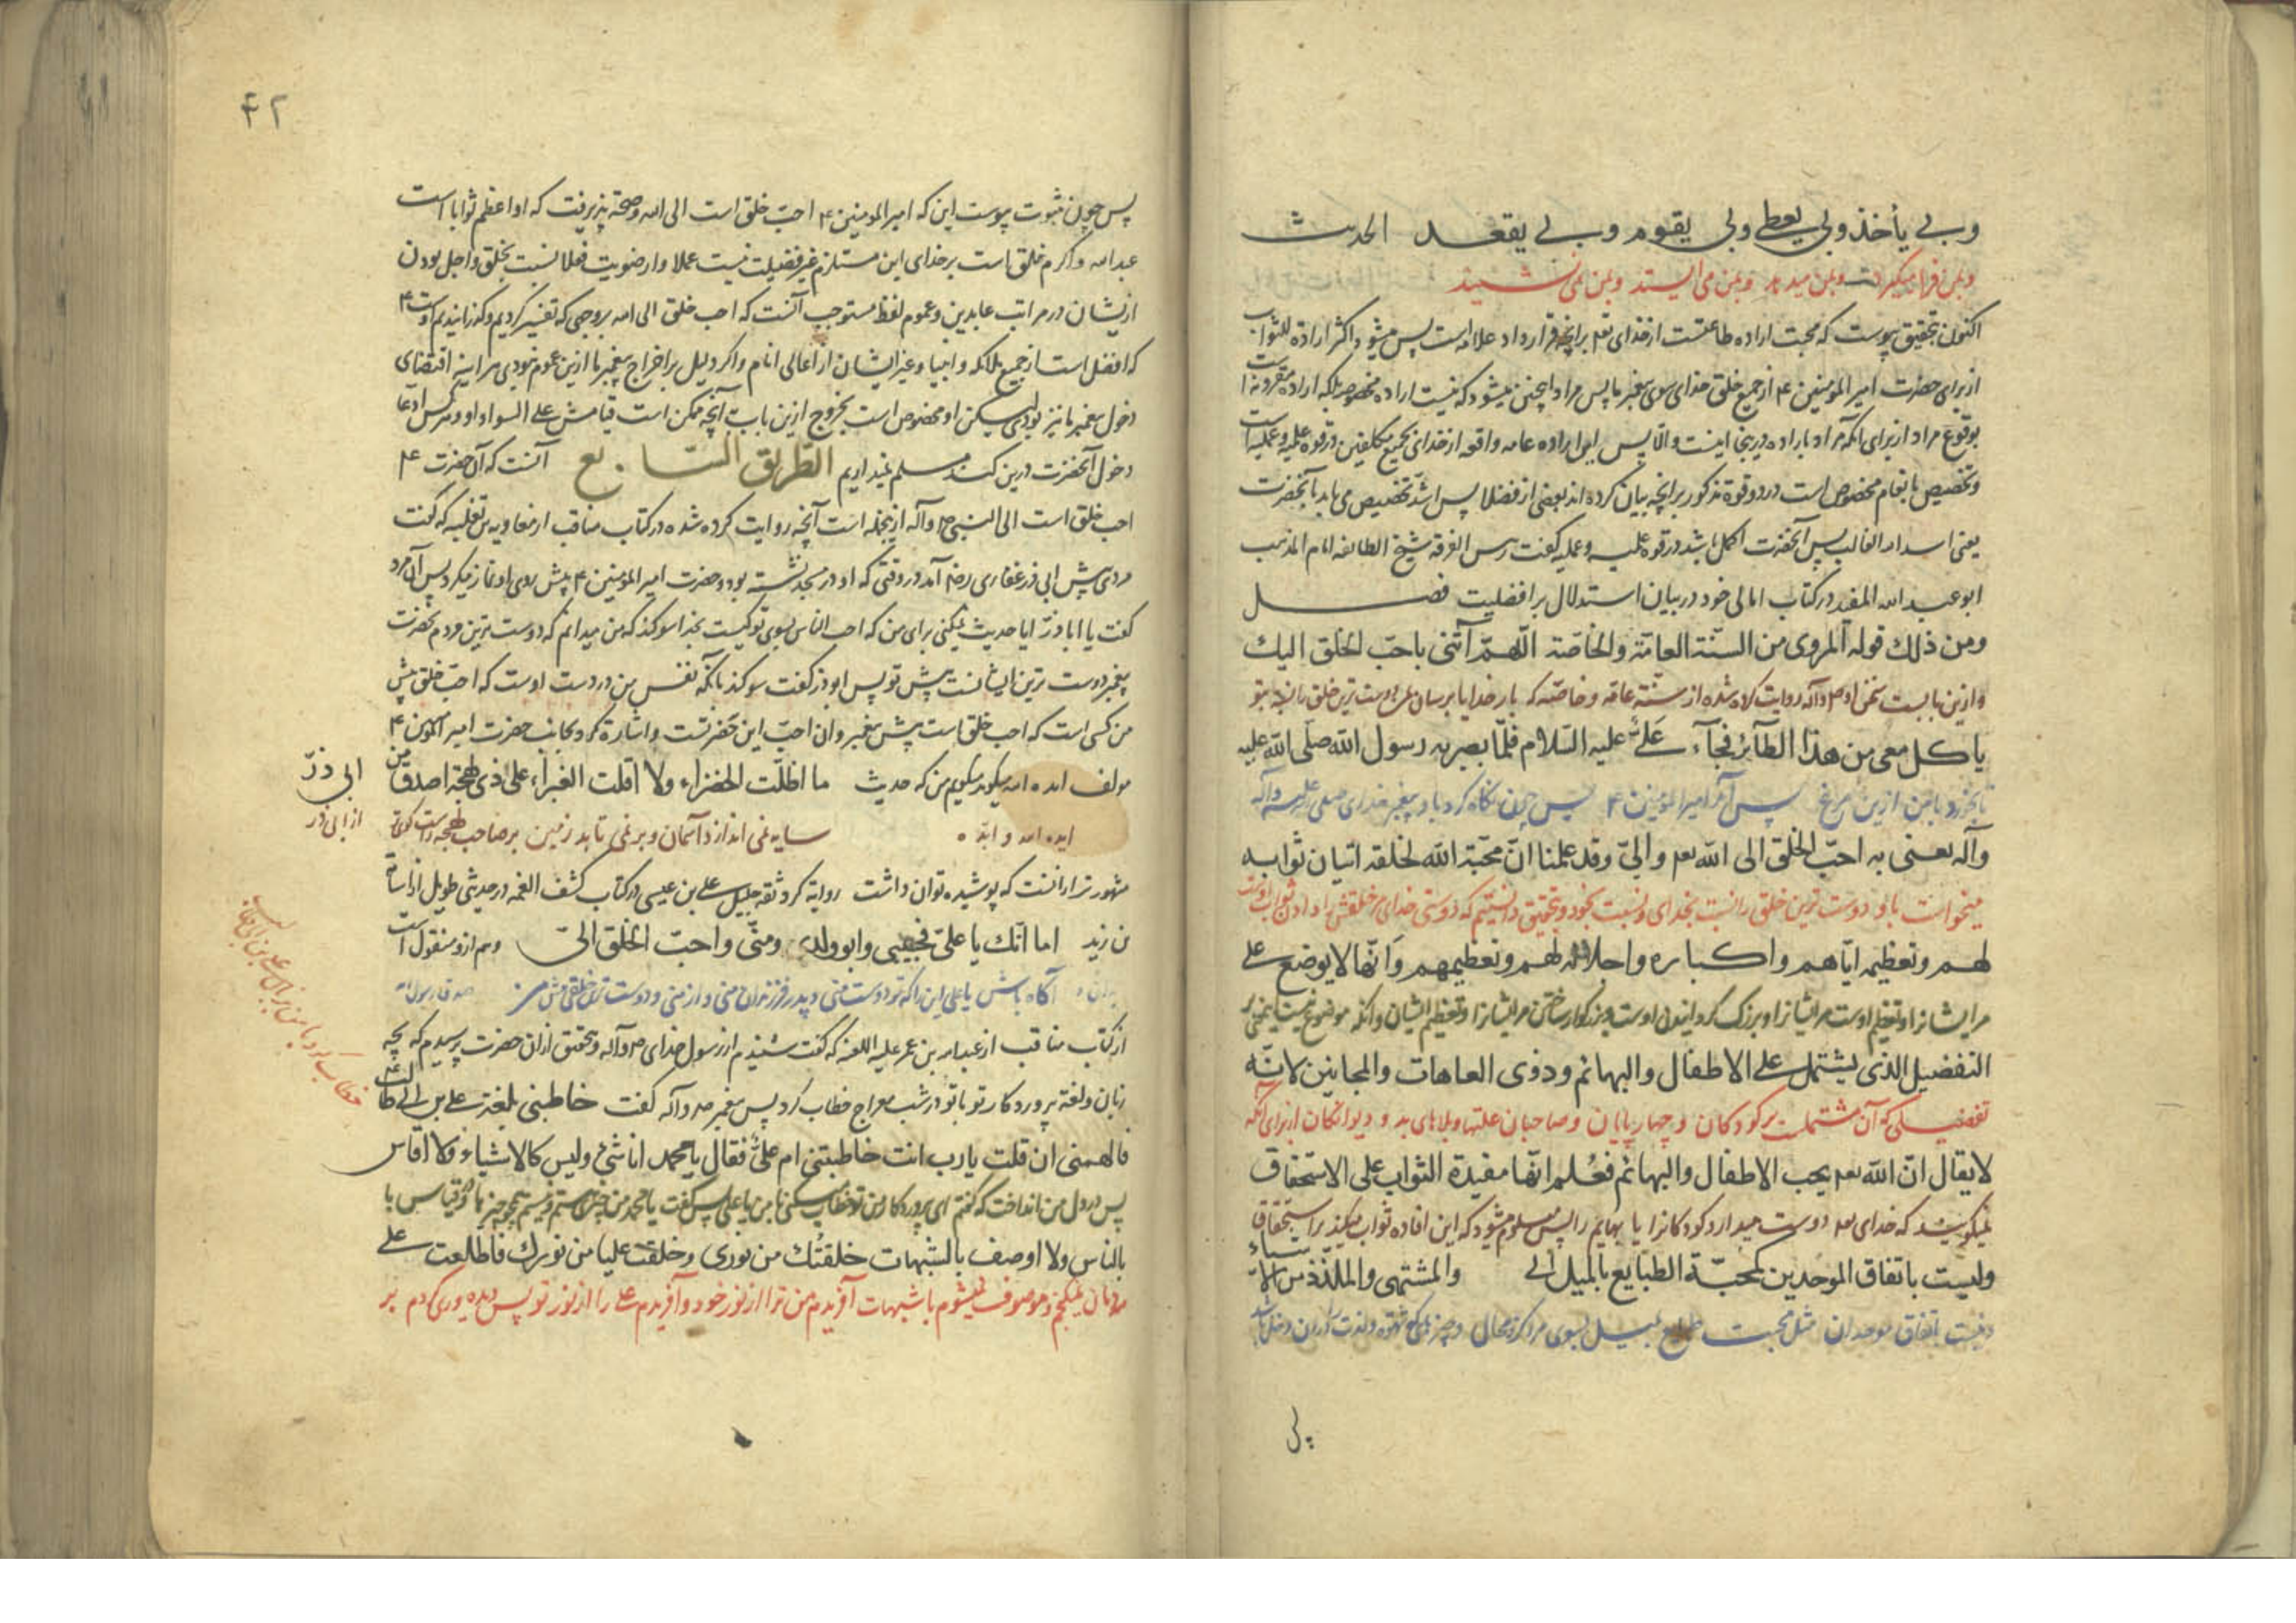 وبي يأخذ وبي يعطي وبي يقوم وبي يقعد الحديث
و بمن فرا میگیرد و بمن میدهد و بمن می ایستد و بمن می نشیند
اکنون بتحقیق پیوست که محبت اراده طاعتست از خدای تع
از برای حضرت امیر المومنین ع از جمیع خلق خدای سوی پیغمبر ما پس مراد
بوقوع مراد از برای آنکه مراد باراده در اینجا اینست والا پس این اراده عامه واقعه از خدای بجمیع مکلفین در قوه علمیه و عملیه است
و تخصیص بانعام مخصوص است در دو قوة مذکور بر آنچه بیان کرده اند بعضی از فضلا پس اشد تخصیص می باید بآنحضرت
یعنی اسد الله الغالب پس آنحضرت اکمل باشد در قوه علمیه و عملیه گفت رئیس الفرقه شیخ الطائفه امام المذهب
ابو عبد الله المفید در کتاب امالی خود در بیان استدلال بر افضلیت فصل
ومن ذلك قوله المروى من السنّة العامّة والخاصّة اللّهمّ آتنى باحبّ الخلق اليك
و ازین بابست سخن او ص وآله روایت کرده شده از سنّة عامّه و خاصّه که بار خدایا برسان بمن دوست ترین خلق را
ياكل معى من هذا الطآئر فجآء عَلىٌّ عليه السّلام فلمّا بصر به رسول الله صلّى الله عليه
تا بخورد با من ازین مرغ پس آمد امیر المومنین ع پس چون نگاه کرد باو پیغمبر خدای صلی علیه وآله
وآله يعنى به احبّ الخلق الى الله تعه والىّ وقد علمنا انّ محبّة الله لخلقه اتيان ثوابه
میخواست باو دوست ترین خلق را نسبت بخدای و نسبت بخود و بتحقیق دانستیم که دوستی خدای مر خلقش را دادن ثواب اوست
لهم وتعظيمه ايّاهم واكباره واجلاله لهم وتعظيمهم وَانّها لا يوضع على
مر ایشانرا و تعظیم اوست مر ایشانرا و بزرگ گردانیدن اوست و بزرگوار ساختن مر ایشانرا و تعظیم ایشان و آنکه موضوع نیست
التفضيل الذى يشتمل على الاطفال والبهائم وذوى العاهات والمجانين لانّه
تفضیلی که آن مشتملست بر کودکان و چهارپایان و صاحبان علتها و بلاهای بد و دیوانگان از برای آنکه
لايقال انّ الله تعه يحب الاطفال والبهائم فعُلم انّها مفيدة الثواب على الاستحقاق
نمیگویند که خدای تعه دوست میدارد کودکانرا یا بهایم را پس معلوم میشود که این افاده ثواب میکند بر استحقاق
وليست باتفاق الموحدين كمحبّة الطبايع بالميل الى والمشتهى والملذّذ من الاشياء
و نیست باتفاق موحدان مثل محبت طبایع بمیل بسوی
پس چون بثبوت پیوست این که امیر المومنین ع احبّ خلق است الی الله و صحة پذیرفت که او اعظم ثوابا است
عند الله و اکرم خلق است بر خدای این مستلزم غیر فضیلت نیست عملا و ارضویت فعلا نسبت بخلق و اجل بودن
از ایشان در مراتب عابدین و عموم لفظ مستوجب آنست که احب خلق الی الله بروجهی که تفسیر کردیم و گذرانیدیم اوست ع
که افضل است از جمیع ملائکه و انبیا و غیر ایشان از اعالی انام و اگر دلیل بر اخراج پیغمبر ما ازین عموم نبودی هر اینه اقتضای
دخول پیغمبر ما نیز بودی لیکن او مخصوص است بخروج ازین باب آنچه ممکن است قیامش علی السواد او و هر کس ادعا
دخول آنحضرت درین کند مسلم نمیداریم الطّریق السّابع آنست که آن حضرت ع
احب خلق است الی النبی ص وآله از ینجمله است آنچه روایت کرده شده در کتاب مناقب از معاویه بن ثعلبه که گفت
مردی پیش ابی ذر غفاری رضه آمد در وقتی که او در مسجد نشسته بود و حضرت امیر المومنین ع پیش روی او نماز میکرد پس آن مرد
گفت یا ابا ذرّ ایا حدیث نمیکنی برای من که احب الناس بسوی تو کیست بخدا سوگند که من میدانم که دوست ترین مردم بحضرت
پیغمبر دوست ترین ایشانست پیش تو پس ابو ذر گفت سوگند بآنکه نفس من در دست اوست که احبّ خلق پیش
من کسی است که احب خلق است پیش پیغمبر و ان احبّ این حضرتست و اشاره کرد بجانب حضرت امیر المومنین ع
مولف ایده الله میگوید میگویم من که حدیث ما اظلّت الخضراء ولا اقلت الغبراء على ذى لهجة اصدق من ابى ذرّ
ایده الله و ابدّه سایه نمی اندازد آسمان و بر نمی تابد زمین بر صاحب لهجه راست گوتر از ابی ذر
مشهورتر ازانست که پوشیده توان داشت روایة کرد ثقه جلیل علی بن عیسی در کتاب کشف الغمه در حدیثی طویل از اسامة
بن زید اما انّك يا علىّ فحبيبى وابو ولدى ومنّى واحبّ الخلق الىّ وهم ازو منقول است
آگاه باش یا علی این را که تو دوست منی و پدر فرزندان منی و از منی و دوست ترین خلقی پیش من
از کتاب مناقب از عبد الله بن عمر علیه اللعنه که گفت شنیدم از رسول خدای ص وآله و بتحقیق ازان حضرت پرسیدم که بچه
زبان و لغة پروردگار تو با تو در شب معراج خطاب کرد پس پیغمبر ص وآله گفت خاطبنى بلغة على بن ابى طالب ع
فالهمنى ان قلت يارب انت خاطبتنى ام علىٌّ فقال يا محمد انا شئٌ وليس كالاشياء ولا اقاس
پس در دل من انداخت که گفتم ای پروردگار من تو خطاب میکنی با من یا علی پس گفت یا محمد من چیزی هستم و نیستم همچو چیزها و قیاس با
بالناس ولا اوصف بالشبهات خلقتُك من نورى وخلقت عليا من نورك فاطلعت على
مردمان نمیکنم و موصوف نمیشوم با شبهات آفریدم من ترا از نور خود و آفریدم علی را از نور تو پس دیده وری کردم بر